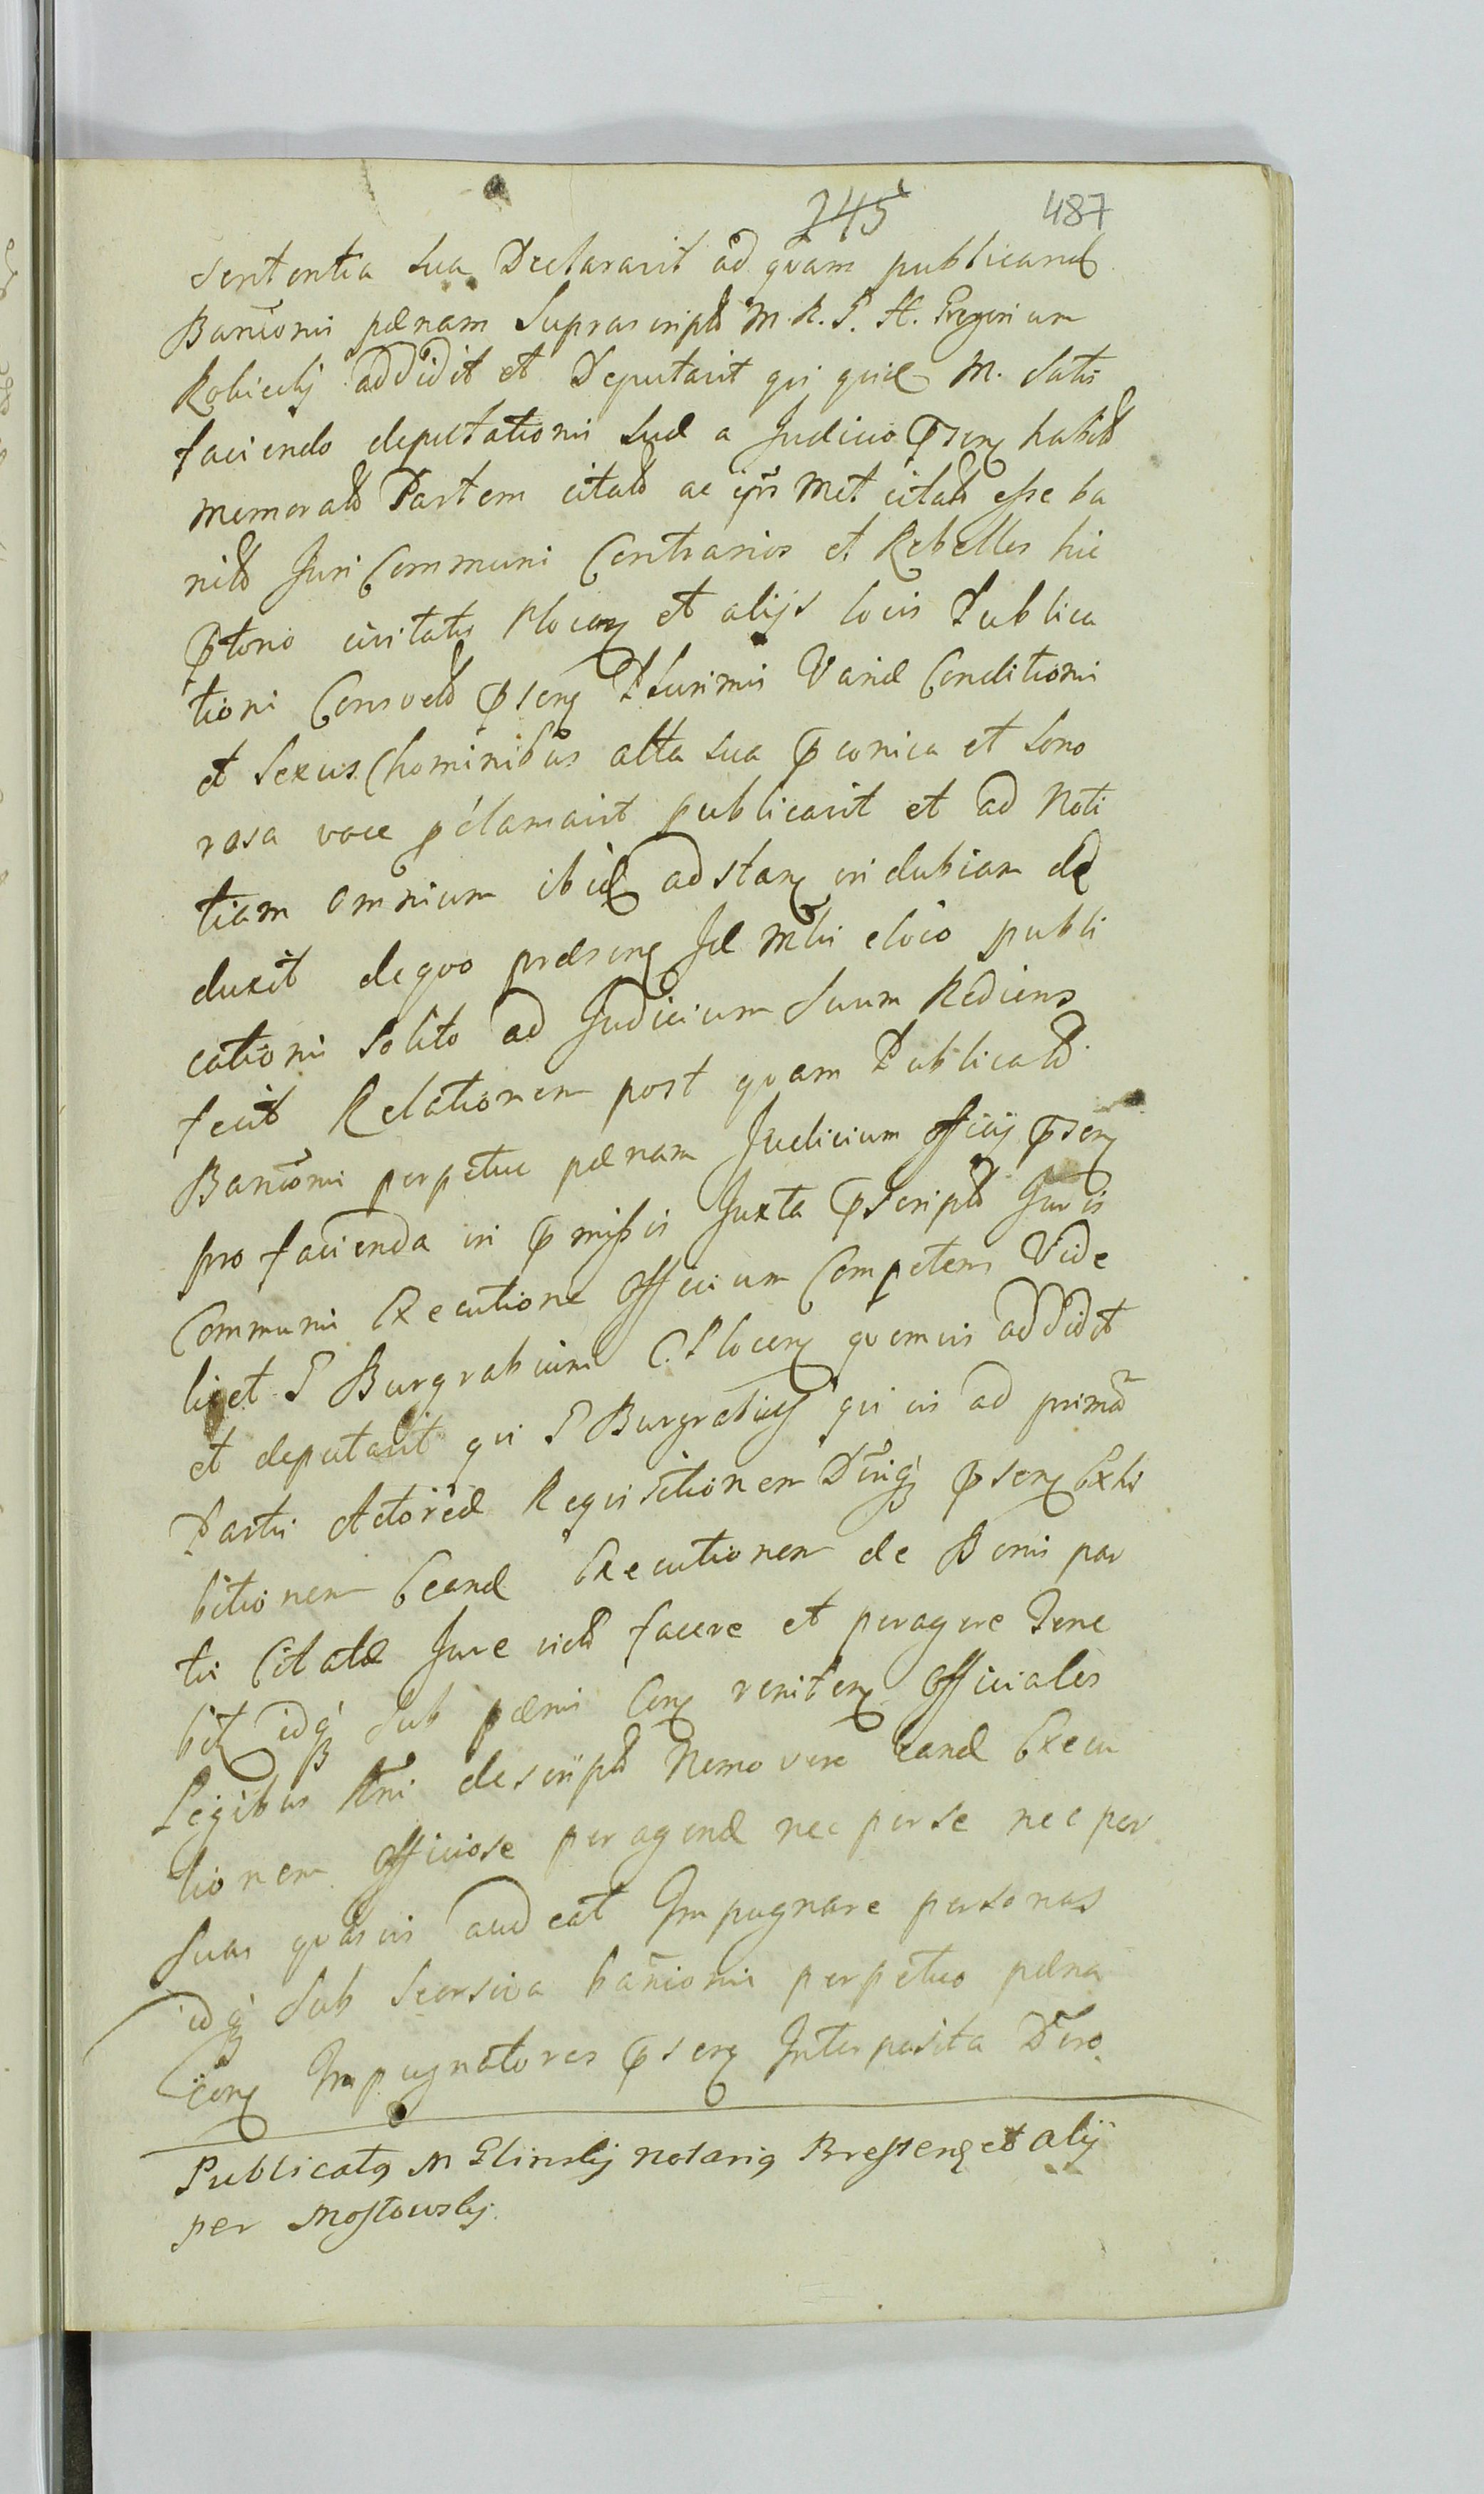 245 487
sententia sua Declaravit ad quam publicand
Bancionis pænam Suprascript M. R. P. H. Gregorium
Kobiecky addidit et Deputavit qui quid M. satis
faciendo deputationi suæ a Judicio psen habit
memorat Partem citat ac ipsismet citat esse ba
nit Juri Communi Contrarios et Rebelles hic
Ptorio civitatis Plocen et alijs locis Publica
tioni Consuet psen Plurimis Variæ Conditionis
et Sexus hominibus alta sua pconica et sono
rosa voce pclamavit publicavit et ad Noti
tiam omnium ibid adstan indubiam de
duxit de quo præsen Jd Mlis eloco publi
cationis solito ad Judicium suum Rediens
fecit Relationem post quam Publicat
Bancionis perpetuæ pænam Judicium officij psen
pro facienda in pmissis Juxta pscript Juris
Communis Executione officium Competens Vide
licet P Burgrabium C. Plocen quemvis addidit
et deputavit qui P Burgrabius quivis ad primā
Partis Actoreæ Requisitionem Dtiq psen Exhi
bitionem Eeand Executionem de Bonis par
tis Citatæ Jure vict facere et peragere Tene
bit idq sub pænis Con renitens officiales
Legibus Rni descript Nemo vero eand Execu
tionem officiose peragend nec per se nec per
suas quasvis audeat Impugnare personas
idq sub seorsiva bancionis perpetuo pæna
con Impugnatores psen Interposita Dtero
Publicatq M Glinsky notariq Bresten et alij
per Mostowsky.